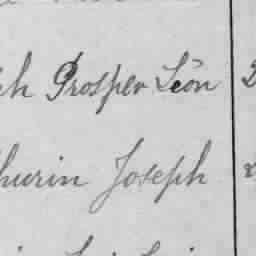 ch Prosper Léon
hurin Joseph